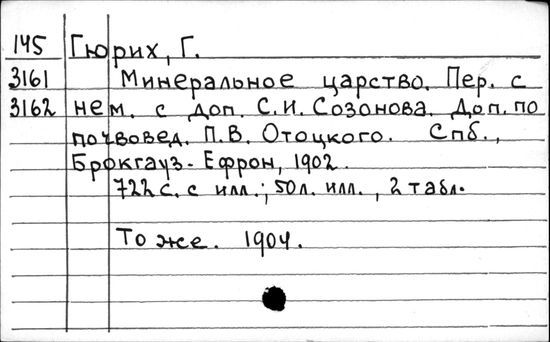 145 Гюрих, Г.
3161 Минеральное царство. Пер. с
3162 нем. с доп. С.И. Созонова. Доп. по
почвовед. П.В. Отоцкого. Спб.,
Брокгауз-Ефрон, 1902.
722 с. с илл.; 50 л. илл., 2 табл.
То же. 1904.